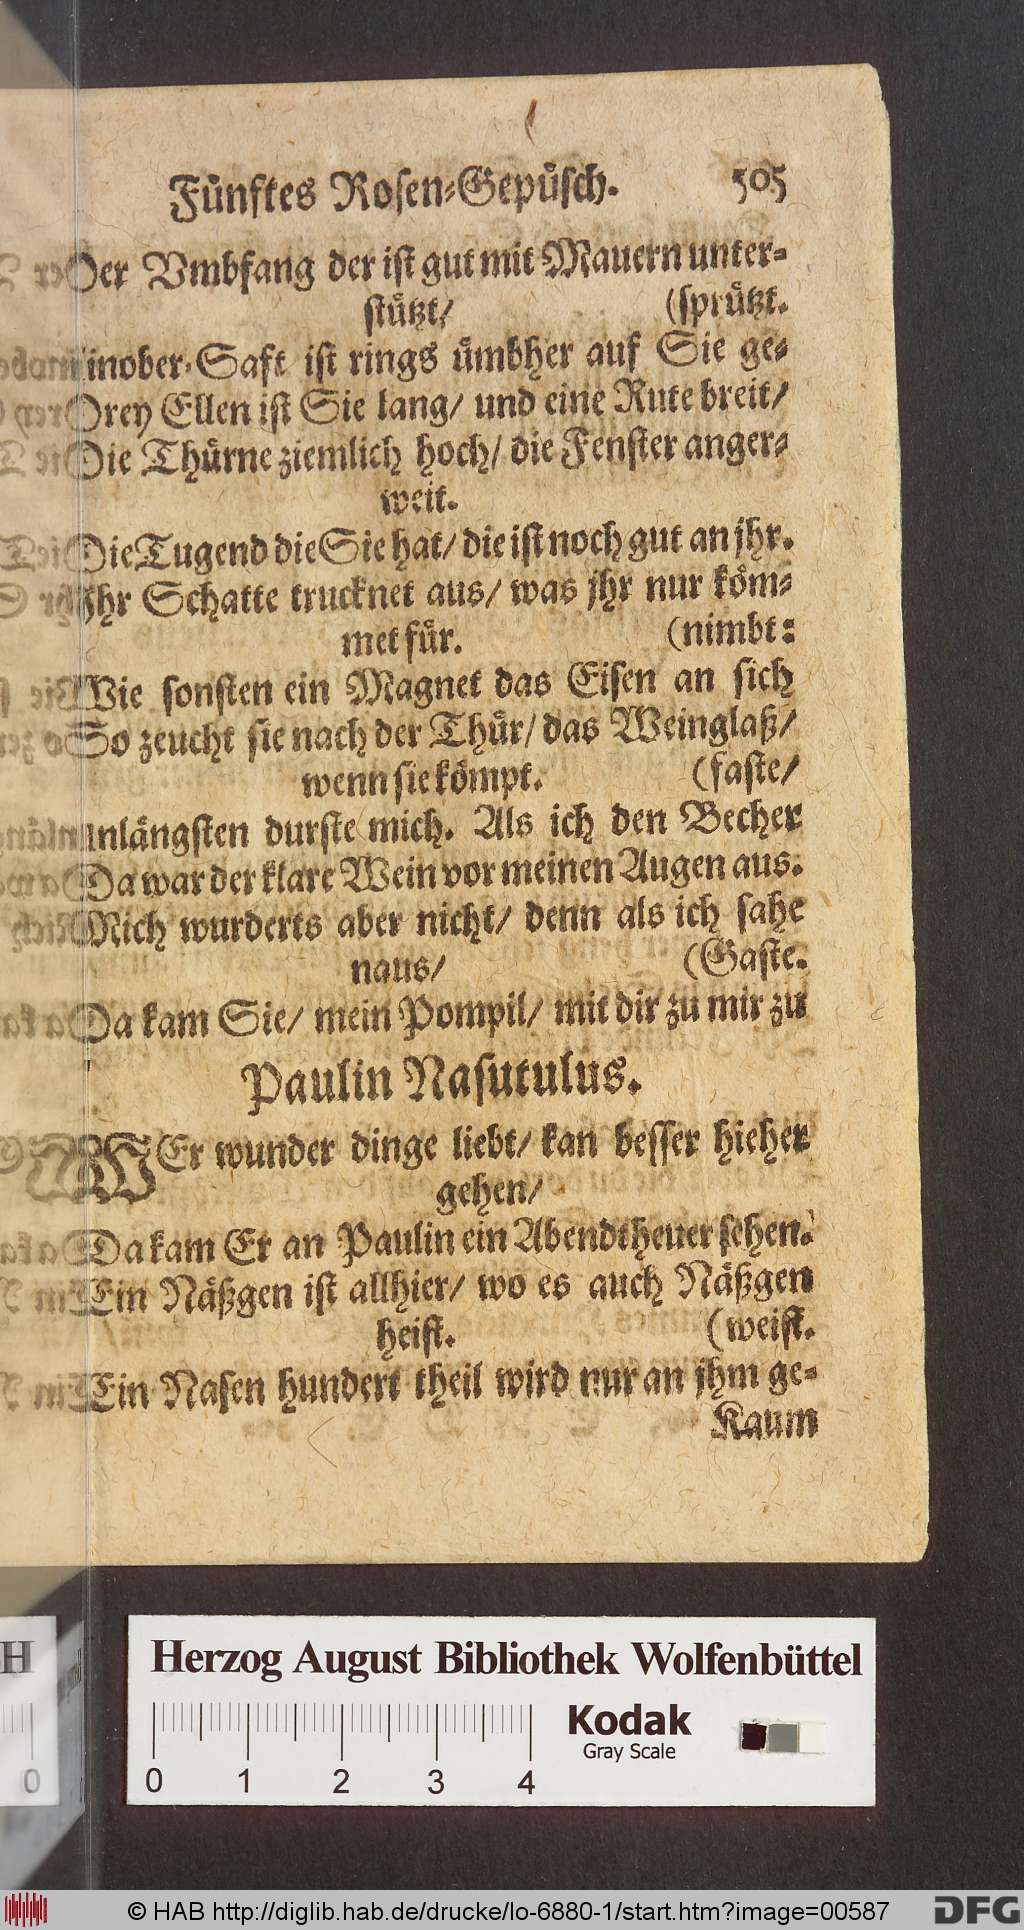 Fünftes Rosen-Gepüsch. 505
Der Vmbfang der ist gut mit Mauern unter-
stützt/ (sprützt.
inober-Saft ist rings ümbher auf Sie ge-
Drey Ellen ist Sie lang/ und eine Rute breit/
Die Thürne ziemlich hoch/ die Fenster anger-
weit.
Die Tugend die Sie hat/ die ist noch gut an jhr.
Ihr Schatte trucknet aus/ was jhr nur köm-
met für. (nimbt:
Wie sonsten ein Magnet das Eisen an sich
So zeucht sie nach der Thür/ das Weinglaß/
wenn sie kömpt. (faste/
Unlängsten durste mich. Als ich den Becher
Da war der klare Wein vor meinen Augen aus.
Mich wurderts aber nicht/ denn als ich sahe
naus/ (Gaste.
Da kam Sie/ mein Pompil/ mit dir zu mir zu
Paulin Nasutulus.
WEr wunder dinge liebt/ kan besser hieher
gehen/
Da kam Er an Paulin ein Abendtheuer sehen.
Ein Näßgen ist allhier/ wo es auch Näßgen
heist. (weist.
Ein Nasen hundert theil wird nur an jhm ge-
Kaum
H
0
Herzog August Bibliothek Wolfenbüttel
Kodak
Gray Scale
0 1 2 3 4
© HAB http://diglib.hab.de/drucke/lo-6880-1/start.htm?image=00587
DFG